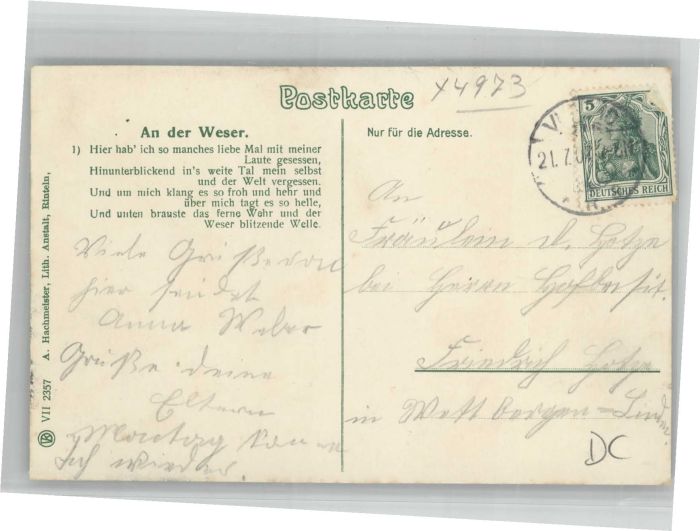 Postkarte
x4973
An der Weser.
1) Hier hab' ich so manches liebe Mal mit meiner
Laute gesessen,
Hinunterblickend in's weite Tal mein selbst
und der Welt vergessen.
Und um mich klang es so froh und hehr und
über mich tagt es so helle,
Und unten brauste das ferne Wehr und der
Weser blitzende Welle.
Viele Grüße von
hier sendet
Anna Weber
Grüße deine
Eltern
Montag komme
ich wieder.
VII 2357 A. Hachmeister, Lith. Anstalt, Rinteln,
Nur für die Adresse.
5
DEUTSCHES REICH
21.7.
An
Fräulein D. Hotze
bei Herrn Hofbesit.
Friedrich Hotze
in Wettbergen=Linden.
DC